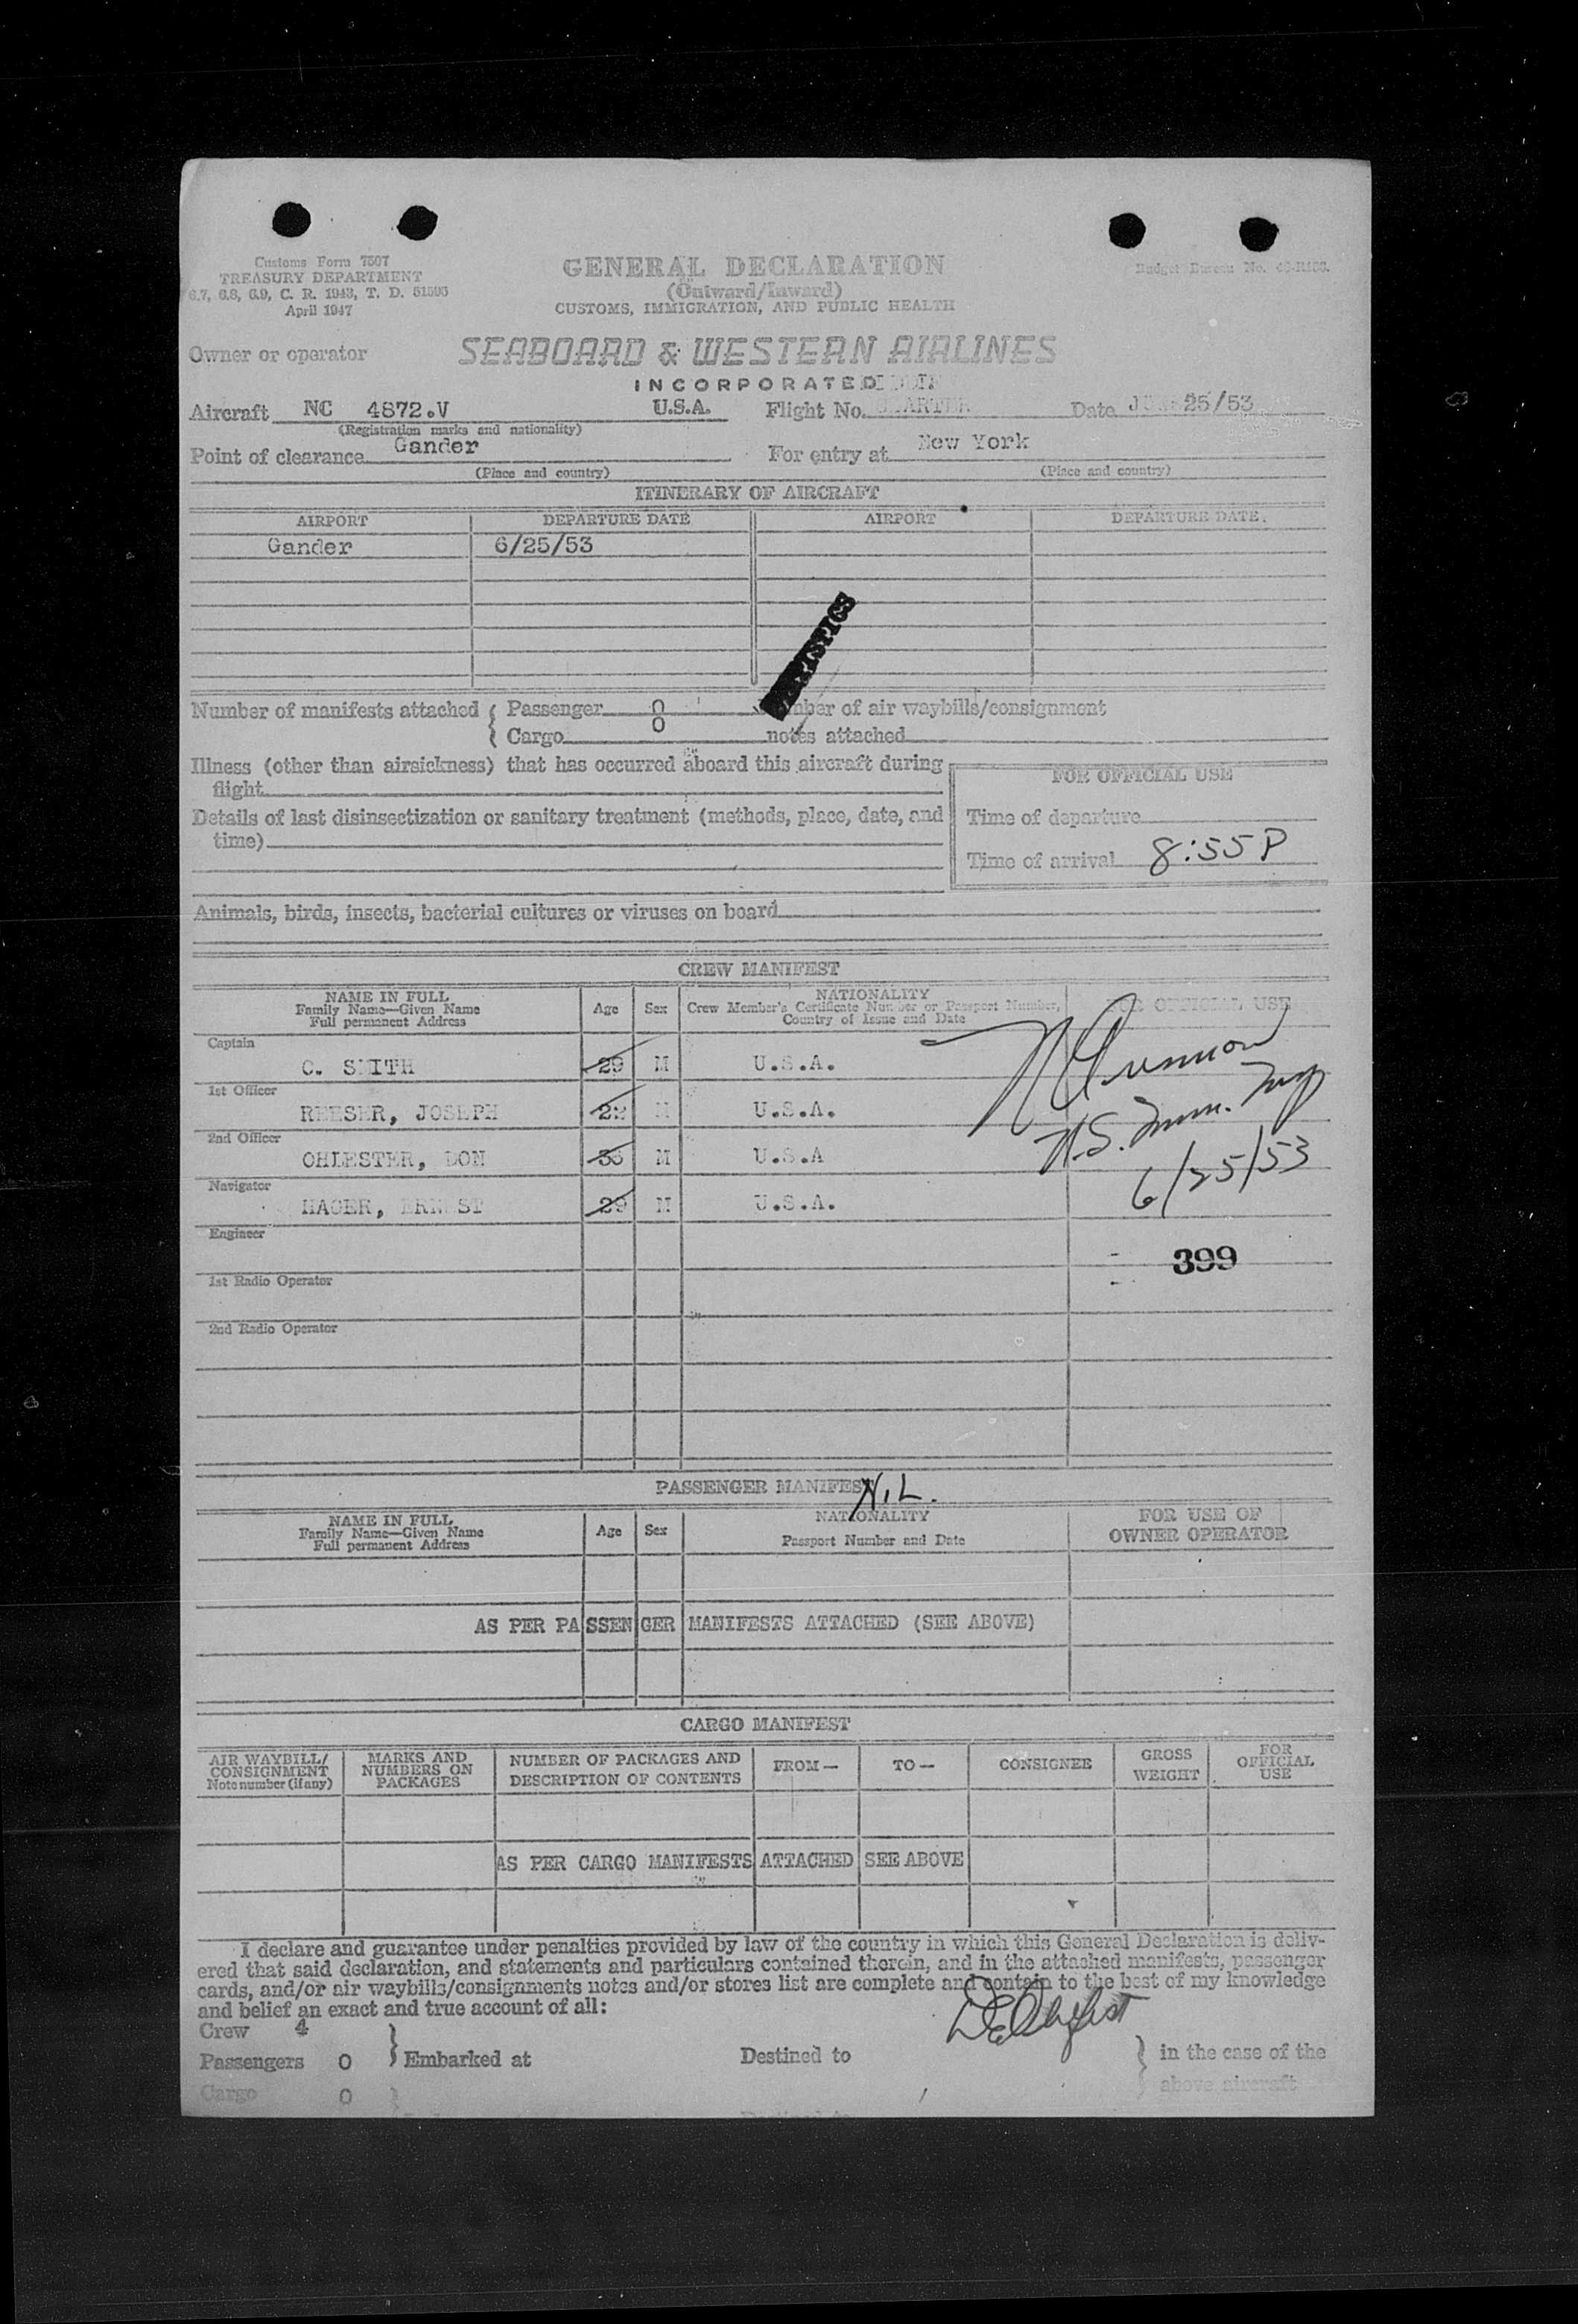 Customs Form 7507
TREASURY DEPARTMENT
6.7, 6.8, 6.9, C. R. 1943, T. D. 51593
April 1947
GENERAL DECLARATION
(Outward/Inward)
CUSTOMS, IMMIGRATION, AND PUBLIC HEALTH
Budget Bureau No.
Owner or operator
SEABOARD & WESTERN AIRLINES
INCORPORATED
Aircraft NC 4872.V U.S.A. Flight No. CHARTER Date 25/53
(Registration marks and nationality)
Point of clearance Gander For entry at New York
(Place and country) (Place and country)
ITINERARY OF AIRCRAFT
AIRPORT DEPARTURE DATE AIRPORT DEPARTURE DATE
Gander 6/25/53
STATISTICS
Number of manifests attached { Passenger 0 Number of air waybills/consignment
Cargo 0 notes attached
Illness (other than airsickness) that has occurred aboard this aircraft during
flight
FOR OFFICIAL USE
Details of last disinsectization or sanitary treatment (methods, place, date, and
time)
Time of departure
Time of arrival 8:55 P
Animals, birds, insects, bacterial cultures or viruses on board
CREW MANIFEST
NAME IN FULL
Family Name—Given Name
Full permanent Address
Age Sex
NATIONALITY
Crew Member's Certificate Number or Passport Number,
Country of Issue and Date
FOR OFFICIAL USE
Captain
C. SMITH 29 M U.S.A.
1st Officer
REESER, JOSEPH M U.S.A.
2nd Officer
OHLESTER, DON M U.S.A
Navigator
HAGER, ERNEST 29 M U.S.A.
6/25/53
Engineer
399
1st Radio Operator
2nd Radio Operator
PASSENGER MANIFEST NIL.
NAME IN FULL
Family Name—Given Name
Full permanent Address
Age Sex
NATIONALITY
Passport Number and Date
FOR USE OF
OWNER OPERATOR
AS PER PASSENGER MANIFESTS ATTACHED (SEE ABOVE)
CARGO MANIFEST
AIR WAYBILL/
CONSIGNMENT
Note number (if any)
MARKS AND
NUMBERS ON
PACKAGES
NUMBER OF PACKAGES AND
DESCRIPTION OF CONTENTS
FROM—
TO—
CONSIGNEE
GROSS
WEIGHT
FOR
OFFICIAL
USE
AS PER CARGO MANIFESTS ATTACHED SEE ABOVE
I declare and guarantee under penalties provided by law of the country in which this General Declaration is deliv-
ered that said declaration, and statements and particulars contained therein, and in the attached manifests, passenger
cards, and/or air waybills/consignments notes and/or stores list are complete and contain to the best of my knowledge
and belief an exact and true account of all:
Crew 4
Passengers 0 } Embarked at Destined to } in the case of the
Cargo 0 above aircraft